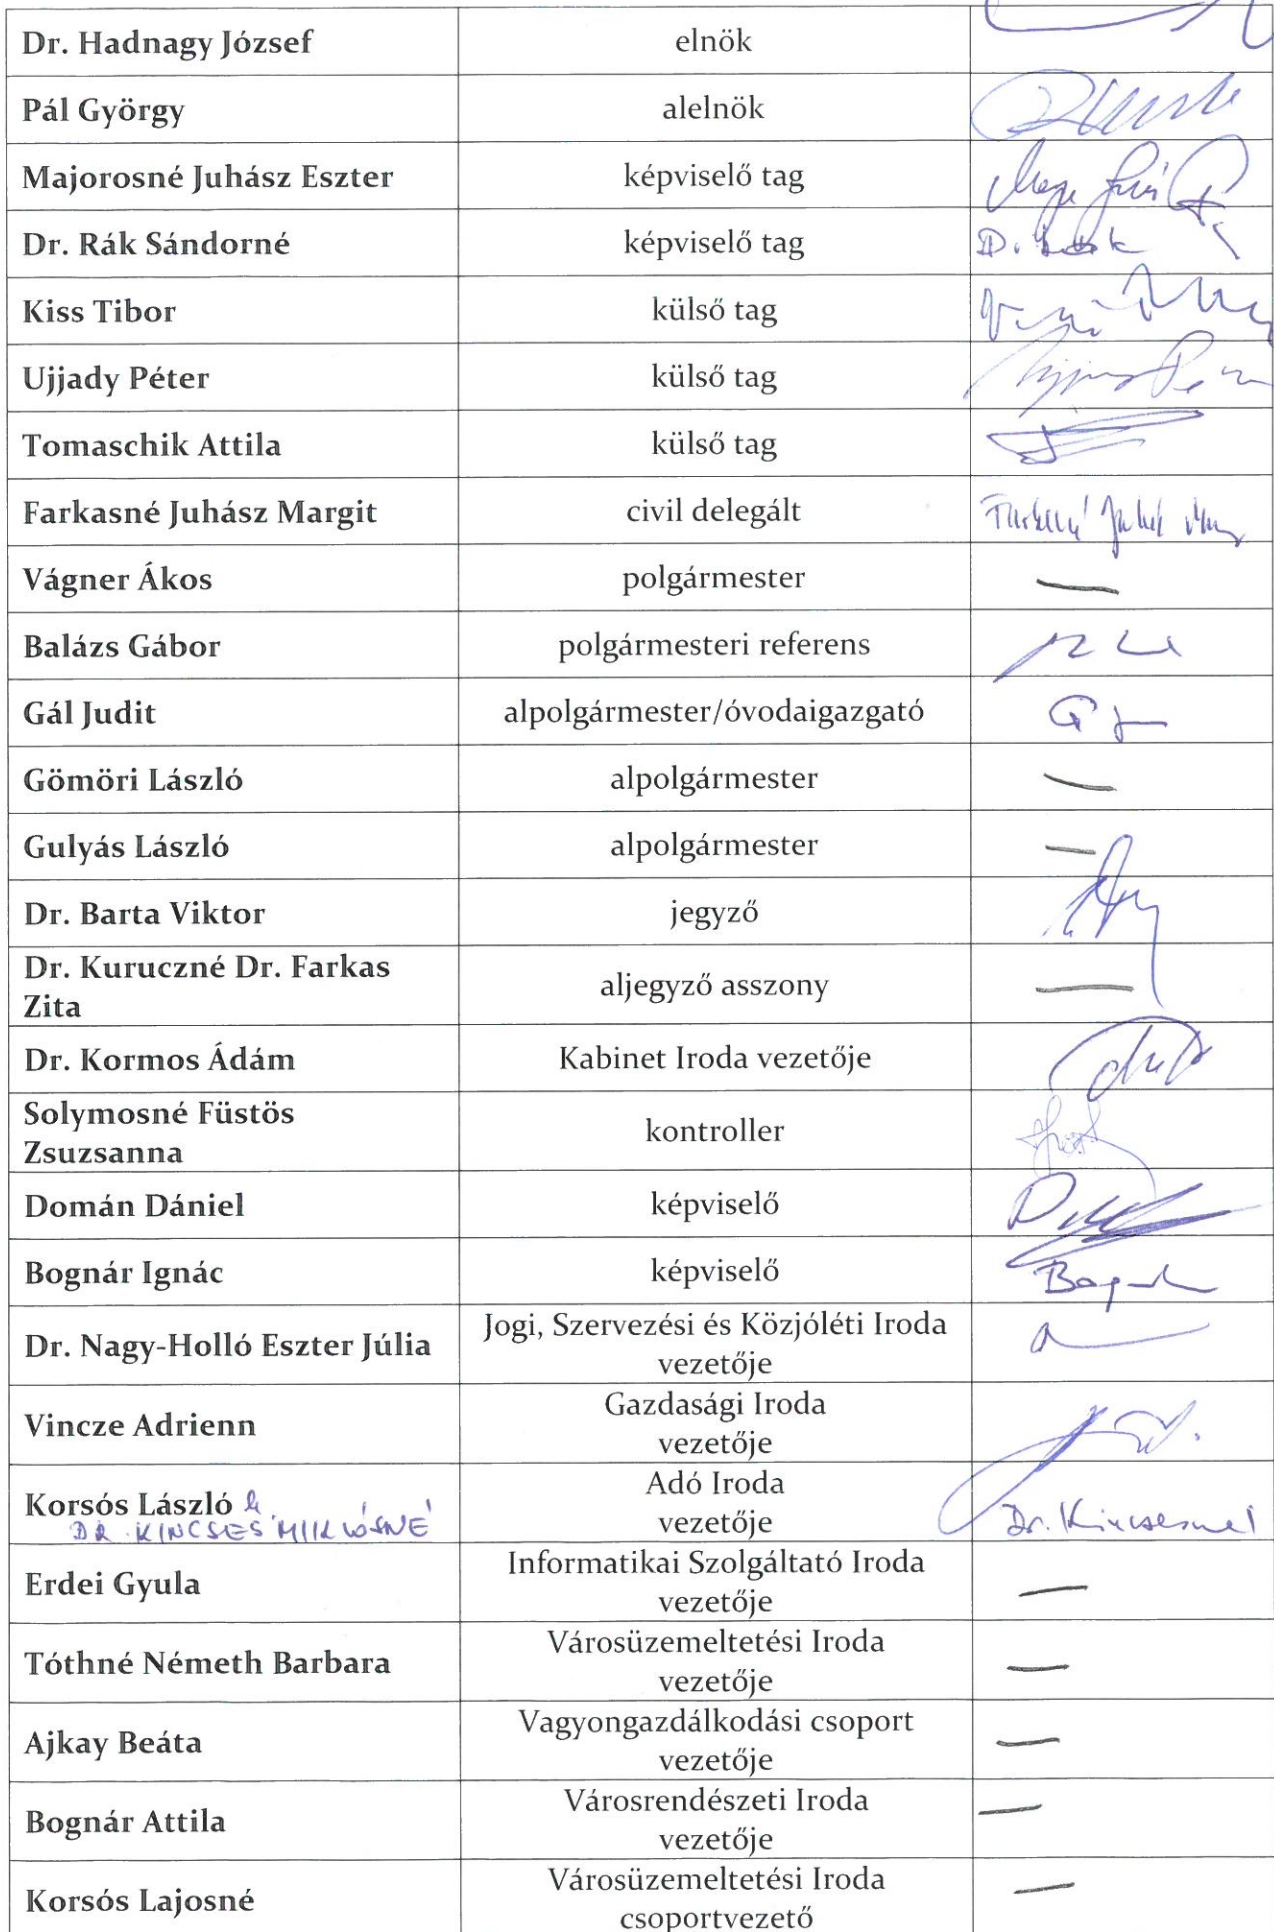 Dr. Hadnagy József elnök
Pál György alelnök
Majorosné Juhász Eszter képviselő tag
Dr. Rák Sándorné képviselő tag
Kiss Tibor külső tag
Ujjady Péter külső tag
Tomaschik Attila külső tag
Farkasné Juhász Margit civil delegált
Vágner Ákos polgármester
Balázs Gábor polgármesteri referens
Gál Judit alpolgármester/óvodaigazgató
Gömöri László alpolgármester
Gulyás László alpolgármester
Dr. Barta Viktor jegyző
Dr. Kuruczné Dr. Farkas
Zita
aljegyző asszony
Dr. Kormos Ádám Kabinet Iroda vezetője
Solymosné Füstös
Zsuzsanna
kontroller
Domán Dániel képviselő
Bognár Ignác képviselő
Dr. Nagy-Holló Eszter Júlia
Jogi, Szervezési és Közjóléti Iroda
vezetője
Vincze Adrienn
Gazdasági Iroda
vezetője
Korsós László h.
DR. KINCSES MIKLÓSNÉ
Adó Iroda
vezetője
Dr. Kincsesné
Erdei Gyula
Informatikai Szolgáltató Iroda
vezetője
Tóthné Németh Barbara
Városüzemeltetési Iroda
vezetője
Ajkay Beáta
Vagyongazdálkodási csoport
vezetője
Bognár Attila
Városrendészeti Iroda
vezetője
Korsós Lajosné
Városüzemeltetési Iroda
csoportvezető